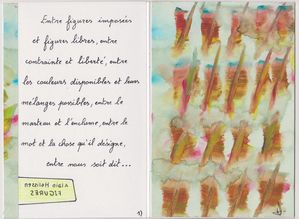 Entre figures imposées
et figures libres, entre
contrainte et liberté, entre
les couleurs disponibles et leurs
mélanges possibles, entre le
marteau et l'enclume, entre le
mot et la chose qu'il désigne,
entre nous soit dit...
FIGURES
1)